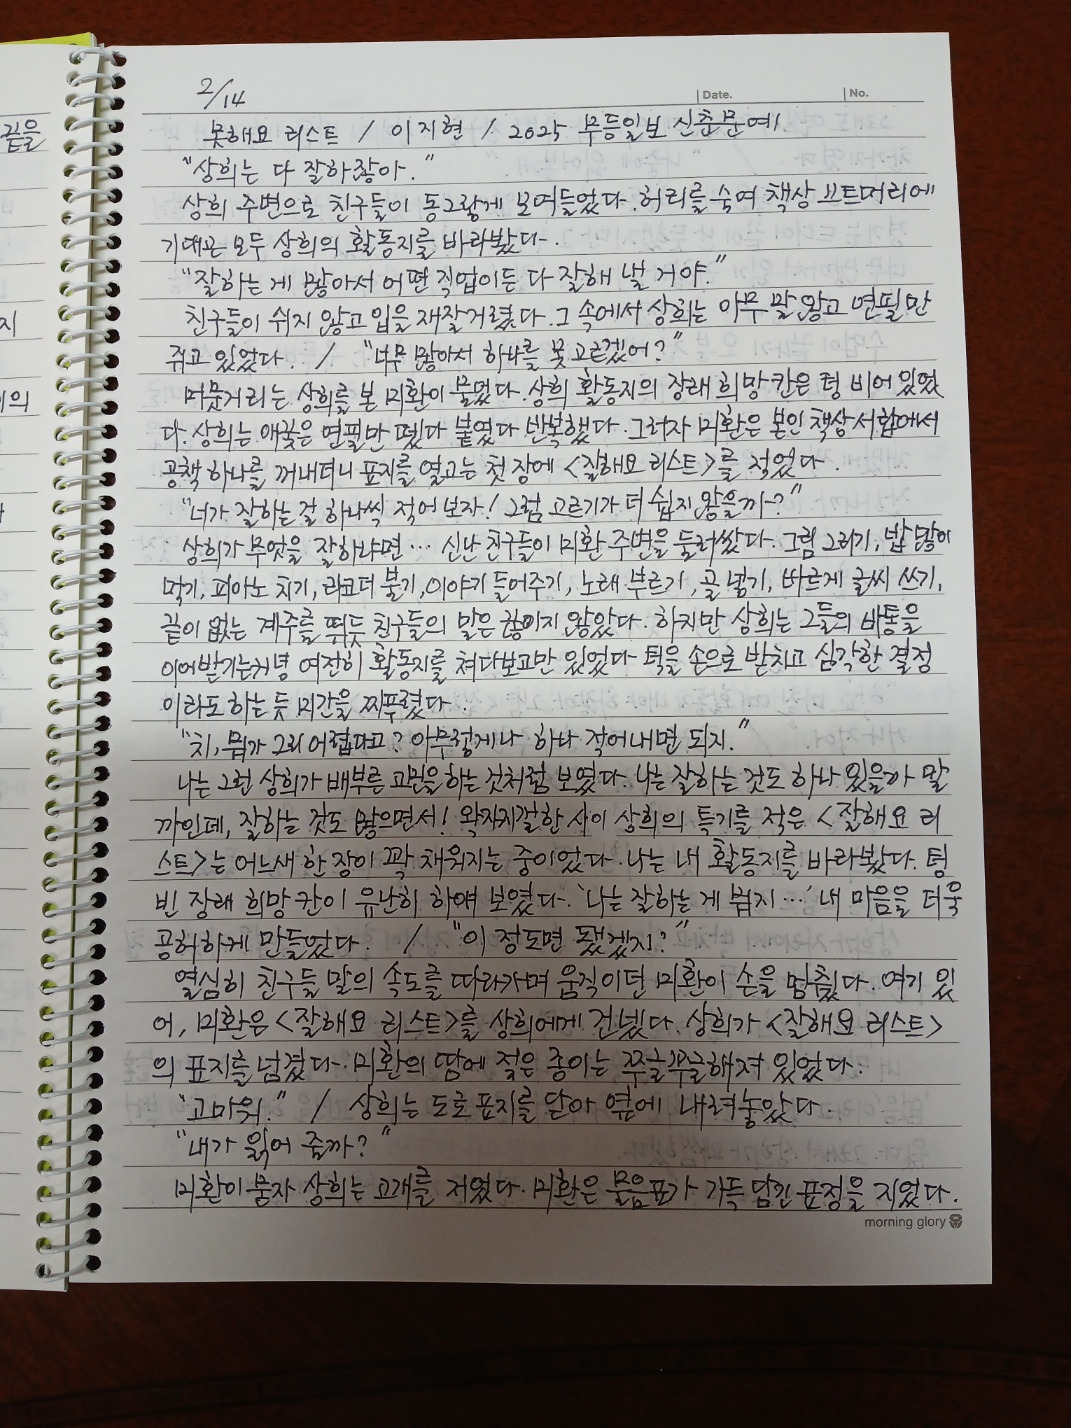 2/14
Date.
No.
못해요 리스트 / 이지현 / 2025 무등일보 신춘문예
"상희는 다 잘하잖아."
상희 주변으로 친구들이 동그랗게 모여들었다. 허리를 숙여 책상 끄트머리에
기대곤 모두 상희의 활동지를 바라봤다.
"잘하는 게 많아서 어떤 직업이든 다 잘해 낼 거야."
친구들이 쉬지 않고 입을 재잘거렸다. 그 속에서 상희는 아무 말 않고 연필만
쥐고 있었다. / "너무 많아서 하나를 못 고르겠어?"
머뭇거리는 상희를 본 미환이 물었다. 상희 활동지의 장래 희망 칸은 텅 비어 있었
다. 상희는 애꿎은 연필만 뗐다 붙였다 반복했다. 그러자 미환은 본인 책상 서랍에서
공책 하나를 꺼내더니 표지를 열고는 첫 장에 <잘해요 리스트>를 적었다.
"네가 잘하는 걸 하나씩 적어 보자! 그럼 고르기가 더 쉽지 않을까?"
상희가 무엇을 잘하냐면… 신난 친구들이 미환 주변을 둘러쌌다. 그림 그리기, 밥 많이
먹기, 피아노 치기, 리코더 불기, 이야기 들어주기, 노래 부르기, 골 넣기, 바르게 글씨 쓰기,
끝이 없는 계주를 뛰듯 친구들의 말은 끊이지 않았다. 하지만 상희는 그들의 배통을
이어받기는커녕 여전히 활동지를 쳐다보고만 있었다. 턱을 손으로 받치고 심각한 결정
이라도 하는 듯 미간을 찌푸렸다.
"치, 뭐가 그리 어렵다고? 아무렇게나 하나 적어내면 되지."
나는 그런 상희가 배부른 고민을 하는 것처럼 보였다. 나는 잘하는 것도 하나 있을까 말
까인데, 잘하는 것도 많으면서! 왁자지껄한 사이 상희의 특기를 적은 <잘해요 리
스트>는 어느새 한 장이 꽉 채워지는 중이었다. 나는 내 활동지를 바라봤다. 텅
빈 장래 희망 칸이 유난히 하얘 보였다. '나는 잘하는 게 뭔지…' 내 마음을 더욱
공허하게 만들었다. / "이 정도면 됐겠지?"
열심히 친구들 말의 속도를 따라가며 움직이던 미환이 손을 멈췄다. 여기 있
어, 미환은 <잘해요 리스트>를 상희에게 건넸다. 상희가 <잘해요 리스트>
의 표지를 넘겼다. 미환의 땀에 젖은 종이는 쭈글쭈글해져 있었다.
"고마워." / 상희는 도로 표지를 닫아 옆에 내려놓았다.
"내가 읽어 줄까?"
미환이 묻자 상희는 고개를 저었다. 미환은 물음표가 가득 담긴 표정을 지었다.
morning glory